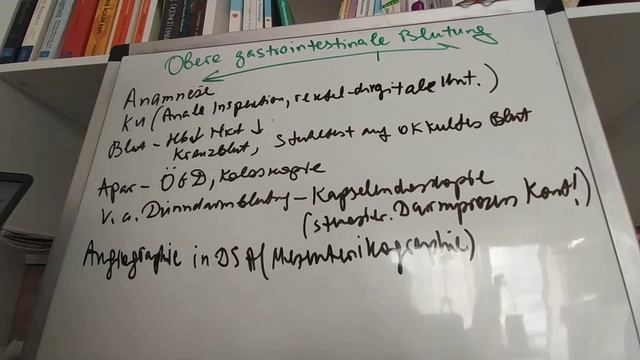 Obere gastrointestinale Blutung
Anamnese
KU (Anale Inspektion, rektal-digitale Unt.)
Blut - Hb↓ Hkt ↓
Kreuzblut, Stuhltest auf okkultes Blut
Apar - ÖGD, Koloskopie
V. a. Dünndarmblutung - Kapselendoskopie
(stenosier. Darmprozess Kont!)
Angiographie in DSA (Mesenterikographie)